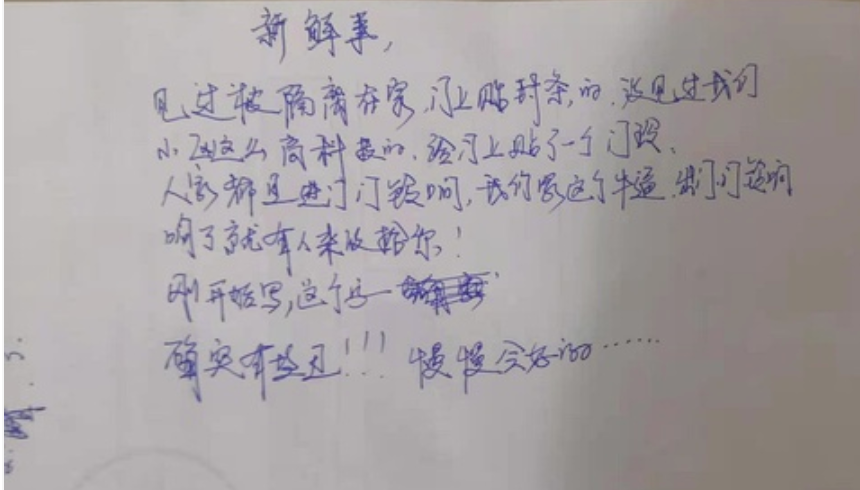 新鲜事,
见过被隔离在家,门上贴封条,的,没见过我们
小区这么高科技的,给门上贴了一个门铃、
人家都是进门门铃响,我们家这个牛逼,出门门铃响
响了就有人来收拾你!
刚开始写,这个字一
确实有些丑!!! 慢慢会好的……